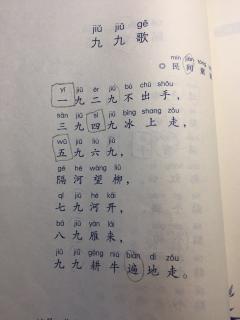 jiǔ jiǔ gē
九九歌
mín jiān tóng
◎民间童
yī jiǔ èr jiǔ bù chū shǒu
一九二九不出手，
sān jiǔ sì jiǔ bīng shang zǒu
三九四九冰上走，
wǔ jiǔ liù jiǔ
五九六九，
gé hé wàng liǔ
隔河望柳，
qī jiǔ hé kāi
七九河开，
bā jiǔ yàn lái
八九雁来，
jiǔ jiǔ gēng niú biàn dì zǒu
九九耕牛遍地走。